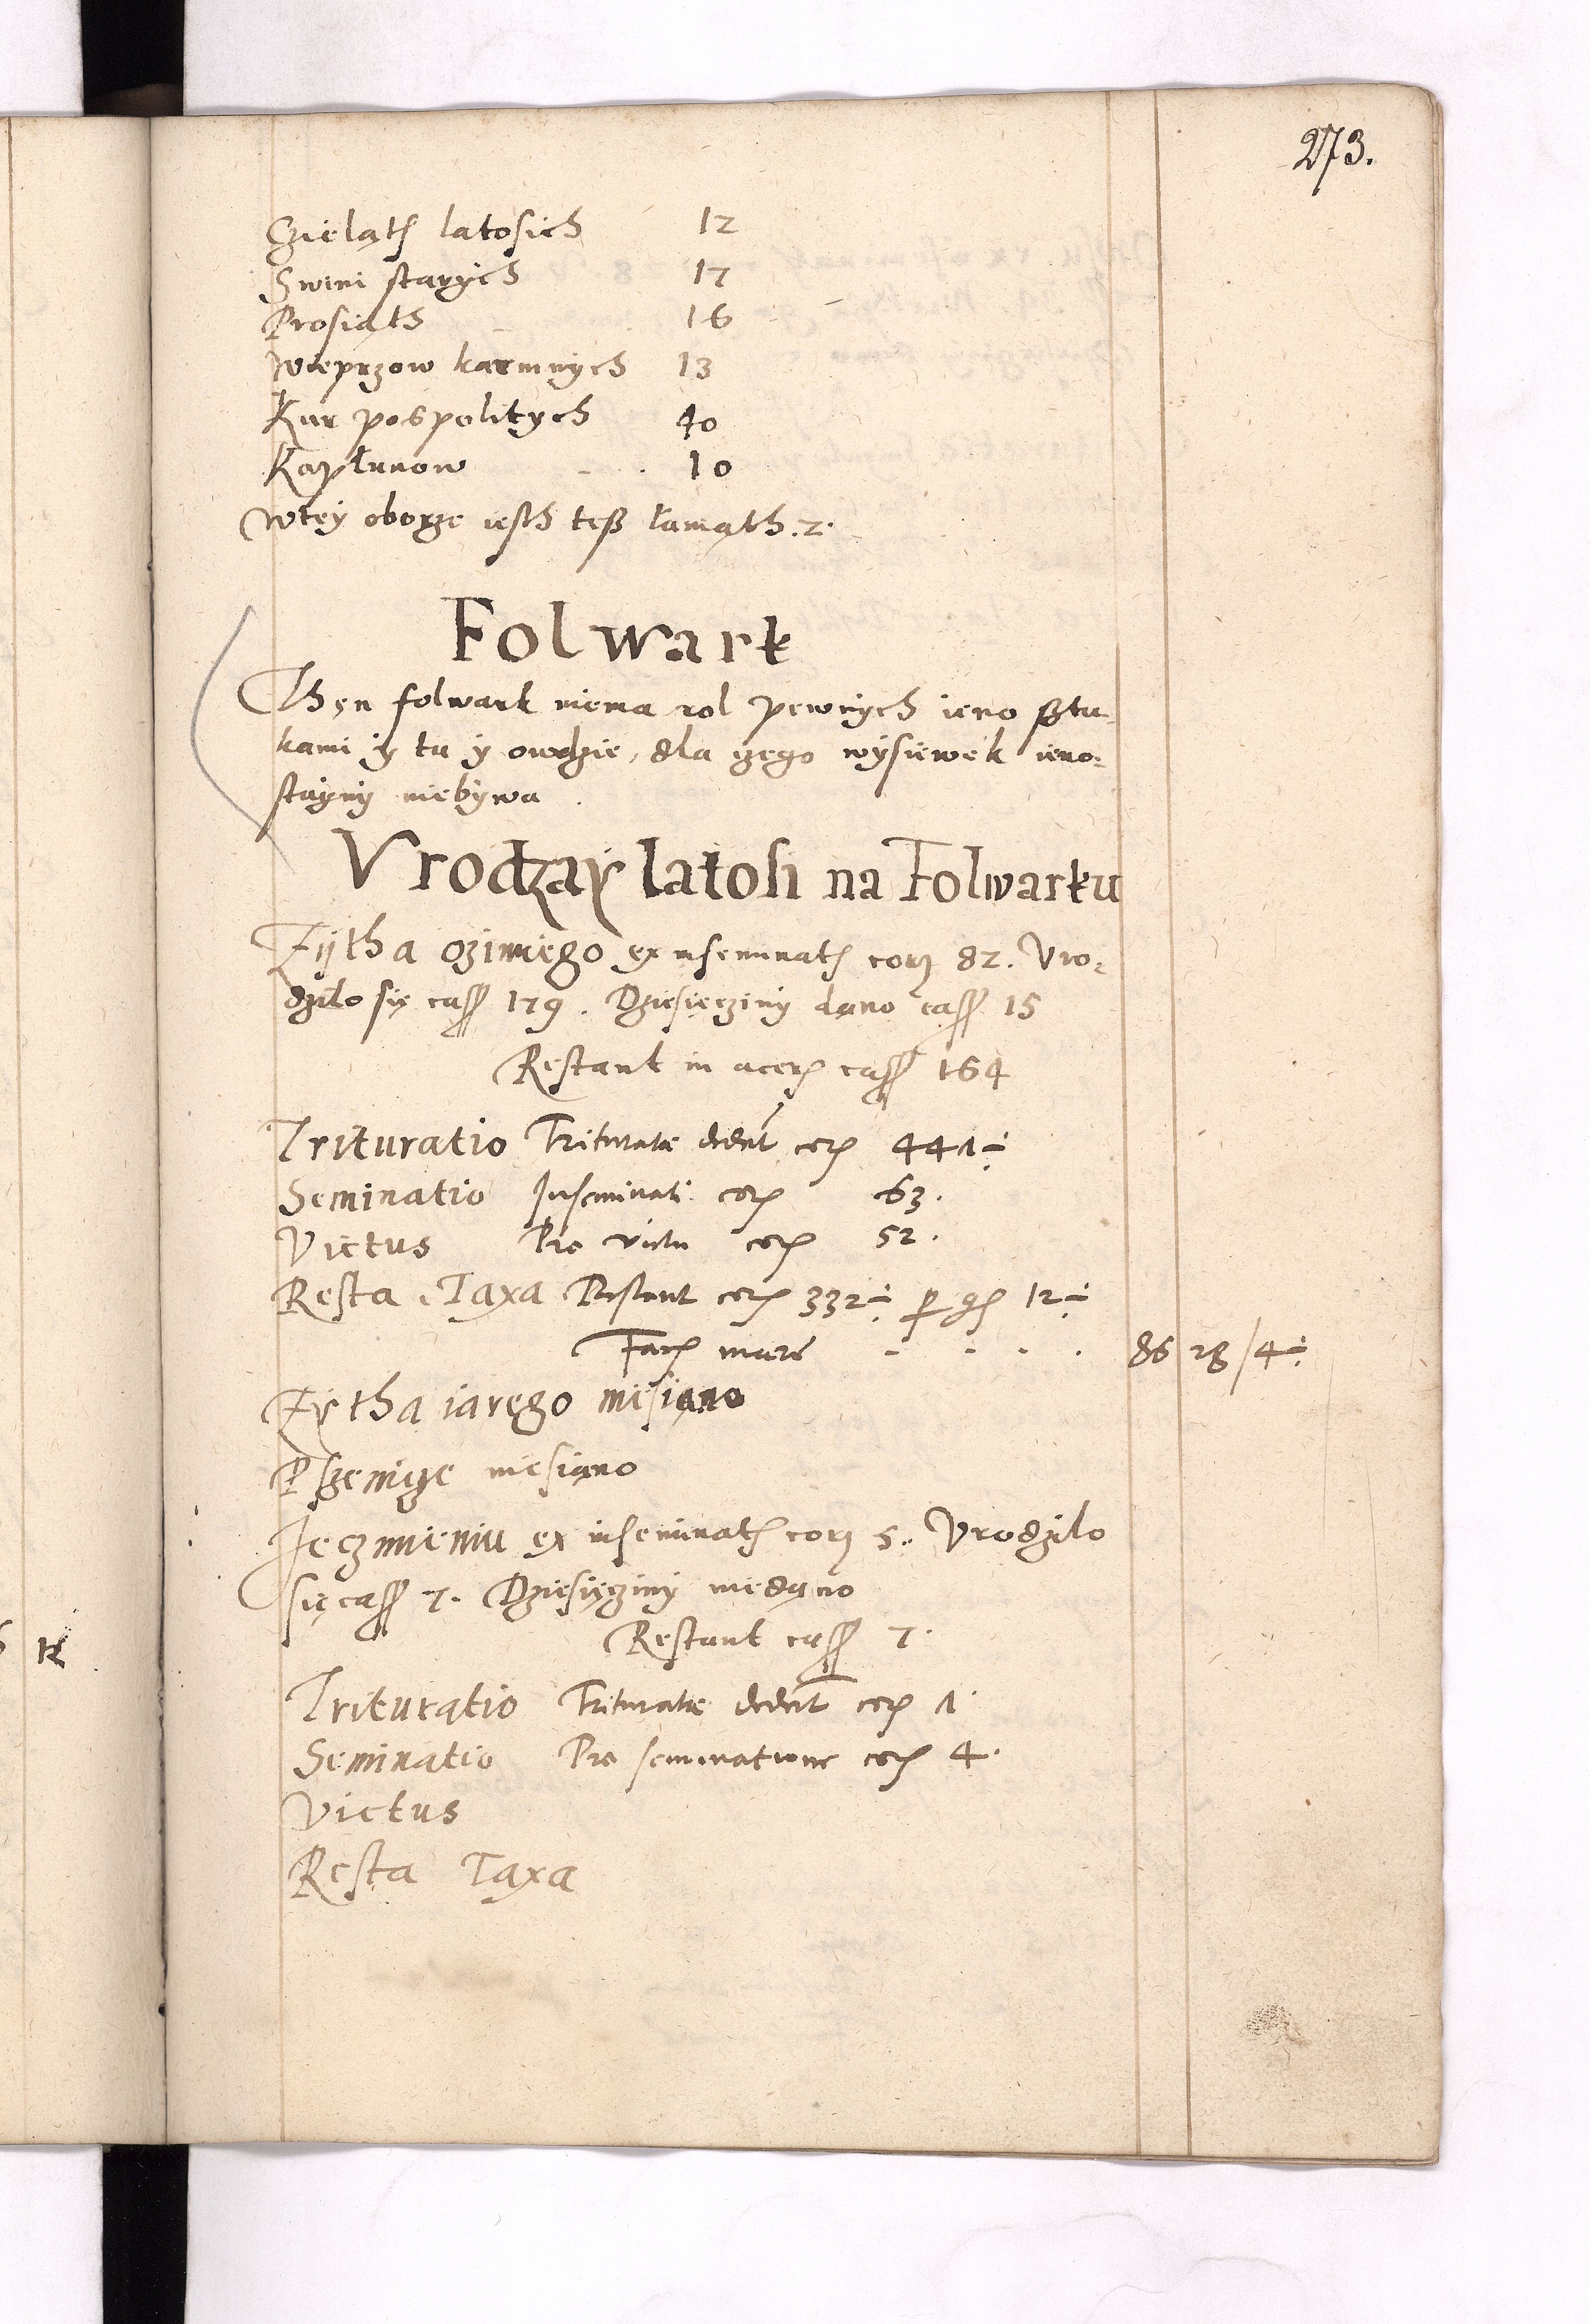 273.
Czieląth latosich 12
Swini starych 17
Prosiąth 16
Wieprzow karmnych 13
Kur pospolitych 40
Kapłunow 10
Wtey oborze iesth tesz łamąth .2.
Folwark
Then folwark niema rol pewnych ieno sztu-
kami y tu y owdzie, dla czego wysiewek ieno-
stayny niebywa
Vrodzay latosi na Folwarku
Zytha ozimego ex inseminath corz 82. Vro-
dzilo się cass 179. Dziesięcziny dano cass 15
Restant in acer cass 164
Trituratio Triturate dedert cor 441÷
Seminatio Inseminati cor 63.
Victus Pro victu cor 52.
Resta Taxa Restant cor 332÷ p gs 12÷
Fac marc - - . . 86 28/4÷
Zytha iarego niesiano
Pszenicze niesiano
Jeczmieniu ex inseminath corz 5. Vrodzilo
się cass 7. Dziesięcziny niedano
Restant cass 7.
Trituratio Triturate dedert cor 1
Seminatio Pro seminatione cor 4.
Victus
Resta Taxa